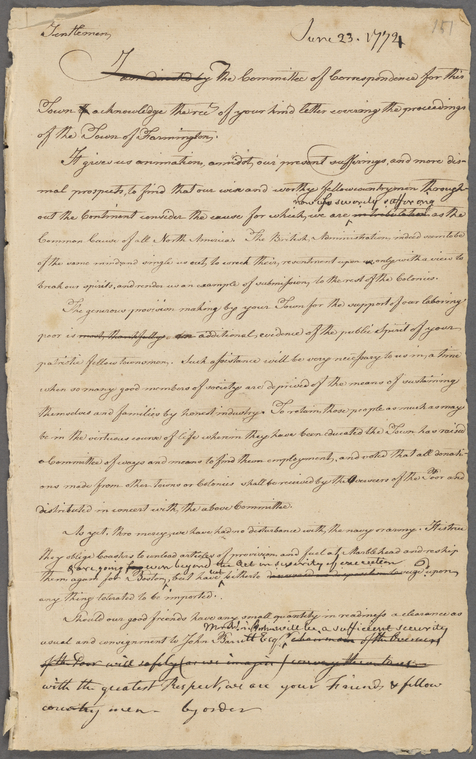 Gentlemen,
June 23. 1774
151
I am directed by The Committee of Correspondence for this
Town to acknowledge the rec.t of your kind letter covering the proceedings
of the Town of Farmington.
It gives us animation, amidst our present sufferings, and more dis-
mal prospects, to find that our wise and worthy fellow countrymen through
out the Continent consider the cause for which we are
now so severely suffering
as the
Common Cause of all North America. The British Administration indeed seem to be
of the same mind and single us out, to wreck their resentment upon only with a view to
break our spirits, and render us an example of submission, to the rest of the Colonies.
The generous provision making by your Town for the support of our laboring
poor is most thankfully additional evidence of the public Spirit of your
patriotic fellow townsmen. Such assistance will be very necessary to us in a time
when so many good members of society are deprived of the means of sustaining
themselves and families by honest industry. To retain those people as much as may
be in the virtuous course of life wherein they have been educated the Town has raised
a Committee of ways and means to find them employment, and voted that all donati-
ons made from other towns or Colonies shall be received by the Overseers of the Poor and
distributed in concert with the above Committee.
As yet, thro mercy, we have had no disturbance with the navy or army. It is true
they oblige Coasters to unload articles of provision and fuel at Marblehead and reship
& are going even beyond the Act in severity of execution
them again for Boston, but have hitherto upon
any thing tolerated to be imported.
Should our good friends have any small quantity in readiness a clearance as
will be a sufficient security
usual and consignment to John Barrett Esq.r chairman of the Overseers
of the Poor will safely (as we imagin) convey them to us
with the greatest Respect, we are your Friends & fellow
country men - by order